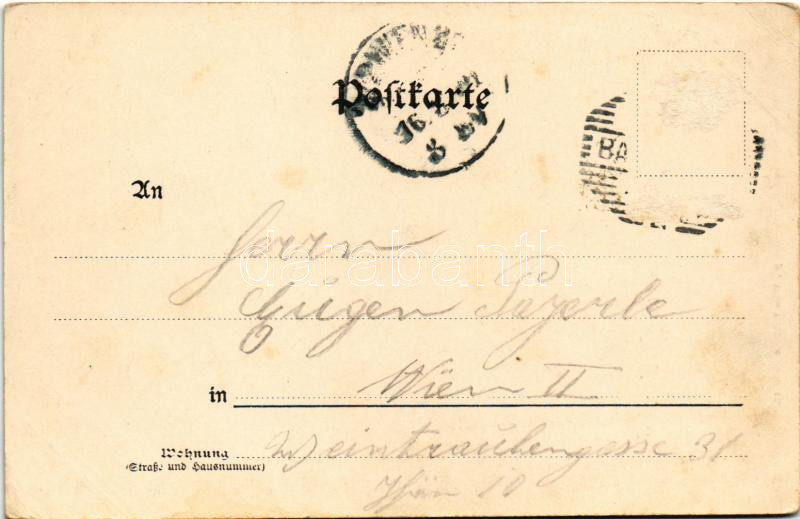 WIEN 2
Postkarte
16.
8
BA
An
Herrn
darabanth
Eugen
in Wien II
Wohnung Weintraubengasse 31
(Straße und Hausnummer)
Thür 10